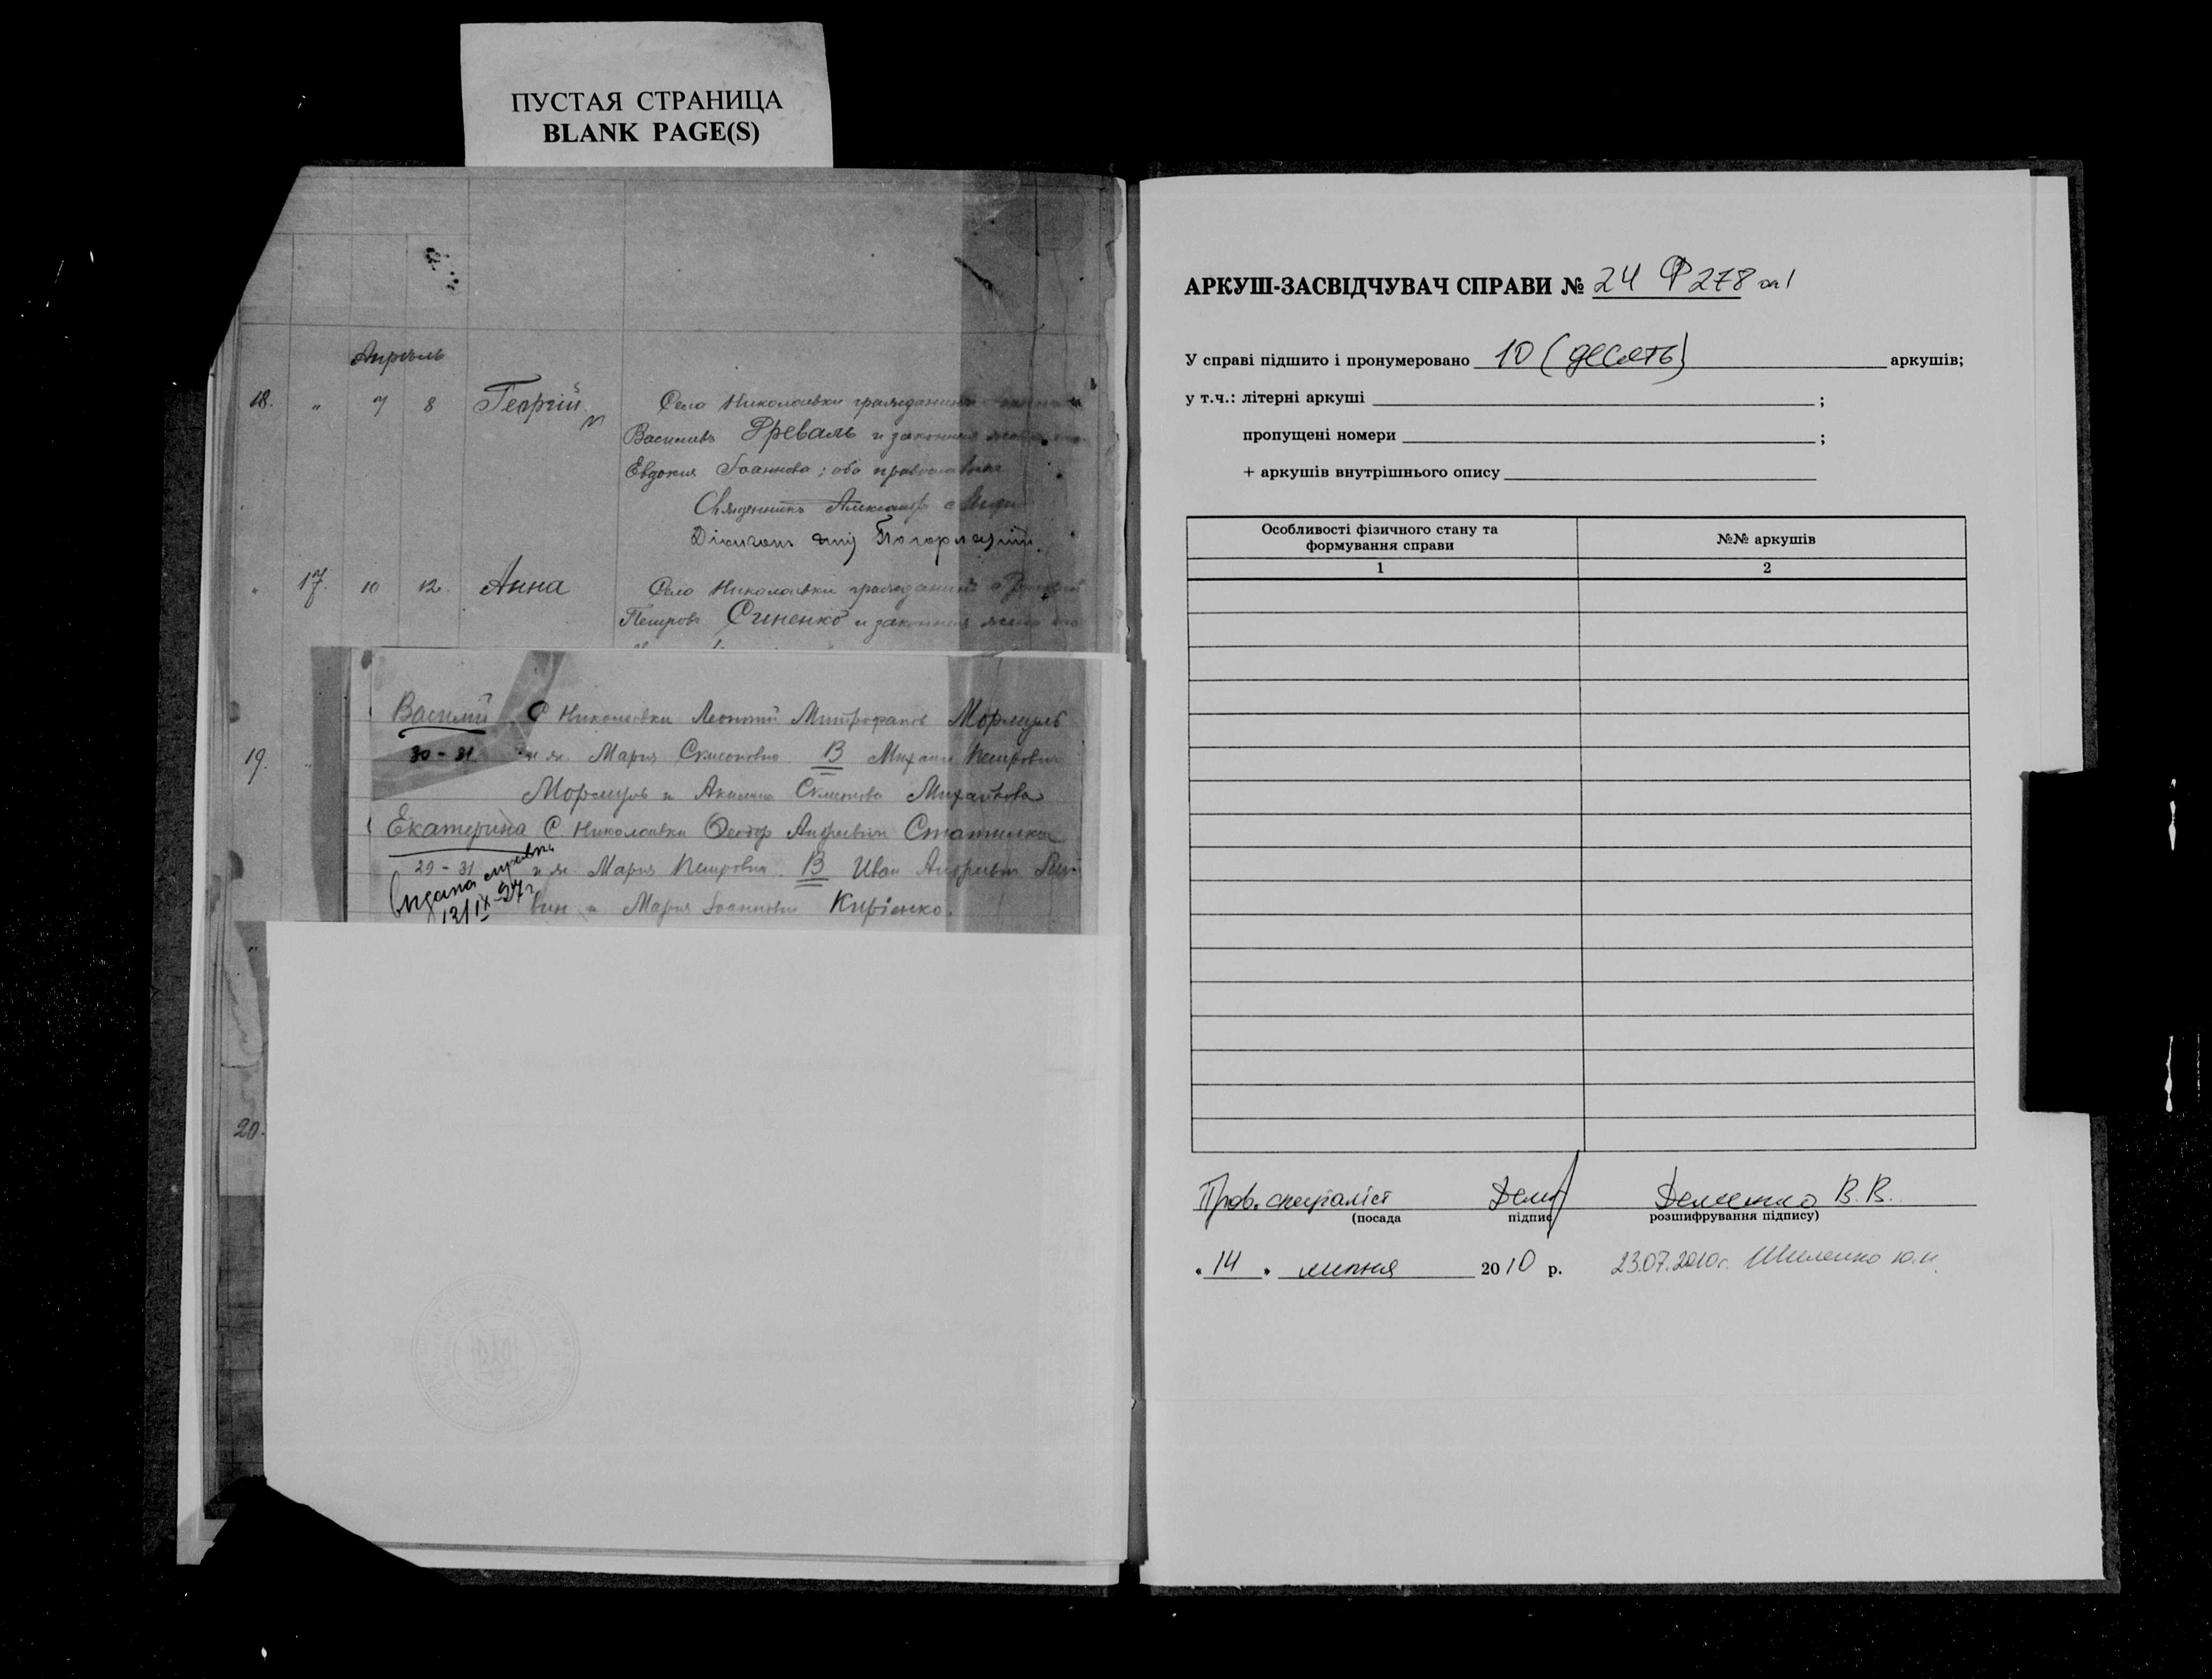 ПУСТАЯ СТРАНИЦА
BLANK PAGE(S)
Апрель
18. " 7 8 Георгій Село Николаевки гражданинъ
Василевъ Греваль и законная
Евдокия Іоаннова; оба православные
Священникъ Александр
Діаконъ Погорлецкий
" 17. 10 12. Анна Село Николаевки гражданинъ
Петровъ Синенко и законная жена его
19. "
Василий С Николаевки Леонтий Митрофанов Мормуль
30-31 и ж Мария Симоновна В Михаил Петрович
Мормуль и Акилина Симонова Михайлова
Екатерина С. Николаевки Феодор Андреевич
29-31 и ж. Мария Петровна. В Иван Андреевич
вин и Мария Іоанновна Киріенко.
Видана справка
12/IX-97г
"
20.
АРКУШ-ЗАСВІДЧУВАЧ СПРАВИ № 24 Ф 278 оп 1
У справі підшито і пронумеровано 10 (десять) аркушів;
у т.ч.: літерні аркуші ;
пропущені номери ;
+ аркушів внутрішнього опису
Особливості фізичного стану та
формування справи
№№ аркушів
1 2
Пров. спеціаліст Дем Деменко В.В.
(посада підпис розшифрування підпису)
" 14 " липня 2010 р. 23.07.2010г. Шиленко Ю.Н.